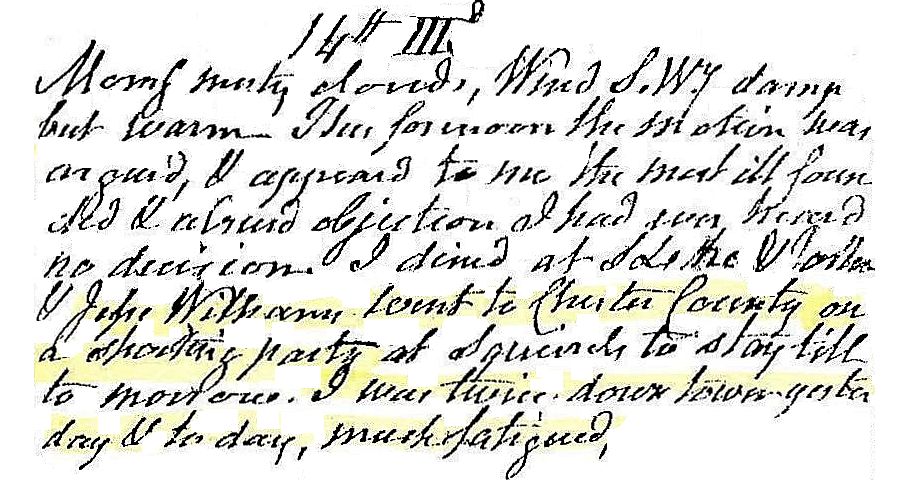 14th III.d
Morng misty, clouds, Wind S.W.y damp
but warm This forenoon the motion was
argued, & appeard to me the most ill foun
ded & absurd objection I had ever heard
no decision. I dined at &
& Jesse Williams went to Chester County on
a shooting party at Squirrels to stay till
to morrow. I was twice down town yester
day & to day, much fatigued,